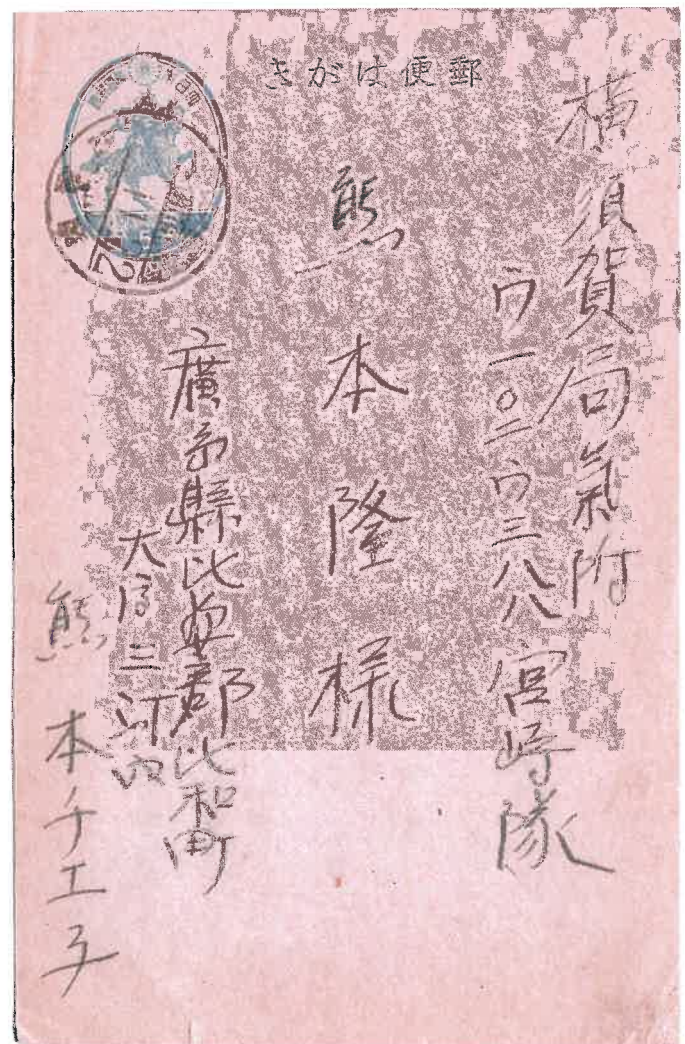 郵便はがき
横須賀局氣附
ウ一〇二ウ三八八宮崎隊
熊本隆様
廣島縣比婆郡比和町
大字三河内
熊本チエ子